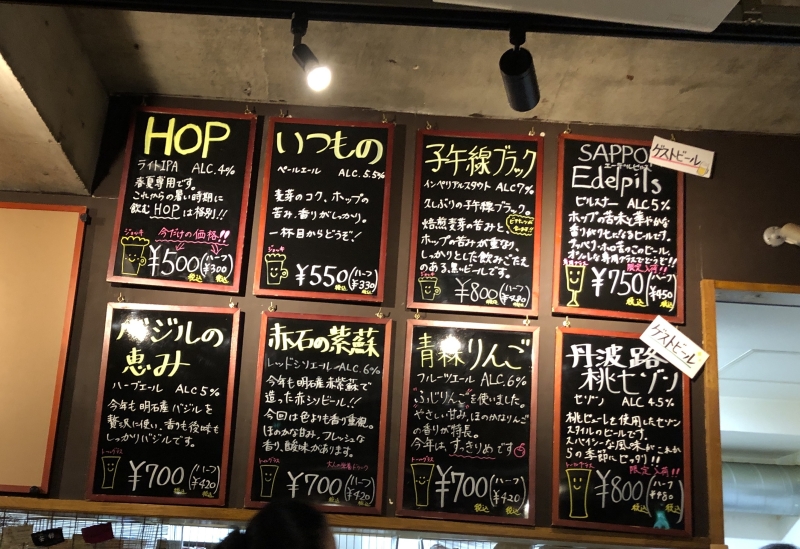 HOP
ライトIPA ALC.4%
春夏専用です。
これからの暑い時期に
飲むHOPは格別!!
今だけの価格!!
ジョッキ
¥500(ハーフ ¥300)
税込
いつもの
ペールエール ALC.5.5%
麦芽のコク、ホップの
苦み、香りがしっかり。
一杯目からどうぞ!
ジョッキ
¥550(ハーフ ¥330)
税込
子午線ブラック
インペリアルスタウト ALC7%
久しぶりの子午線ブラック。
焙煎麦芽の苦みと、
ホップの苦みが重なり、
しっかりとした飲みごたえ
のある、黒ビールです。
ジョッキ
¥800(ハーフ ¥480)
税込
ゲストビール
SAPPO
エーデルピルス
Edelpils
ピルスナー ALC5%
ホップの苦味と華やかな
香りがクセになるビールです。
限定入荷!!
¥750(ハーフ ¥450)
税込
バジルの
恵み
ハーブエール ALC5%
今年も明石産バジルを
贅沢に使い、香も後味も
しっかりバジルです。
トールグラス
¥700(ハーフ ¥420)
税込
赤石の紫蘇
レッドシソエール ALC.6%
今年も明石産赤紫蘇で
造った赤シソビール!!
今回は色よりも香り重視。
ほのかな甘み、フレッシュな
香り、酸味があります。
トールグラス
¥700(ハーフ ¥420)
税込
青森りんご
フルーツエール ALC.6%
"ふじりんご"を使いました。
やさしい甘み、ほのかなりんご
の香りが特長。
今年は、すっきりめです
トールグラス
¥700(ハーフ ¥420)
税込
ゲストビール
丹波路
桃セゾン
セゾン ALC 4.5%
桃ピューレを使用したセゾン
スタイルのビールです。
スパイシーな風味がこれか
らの季節にピッタリ!!
限定入荷!!
¥800(ハーフ ¥480)
税込